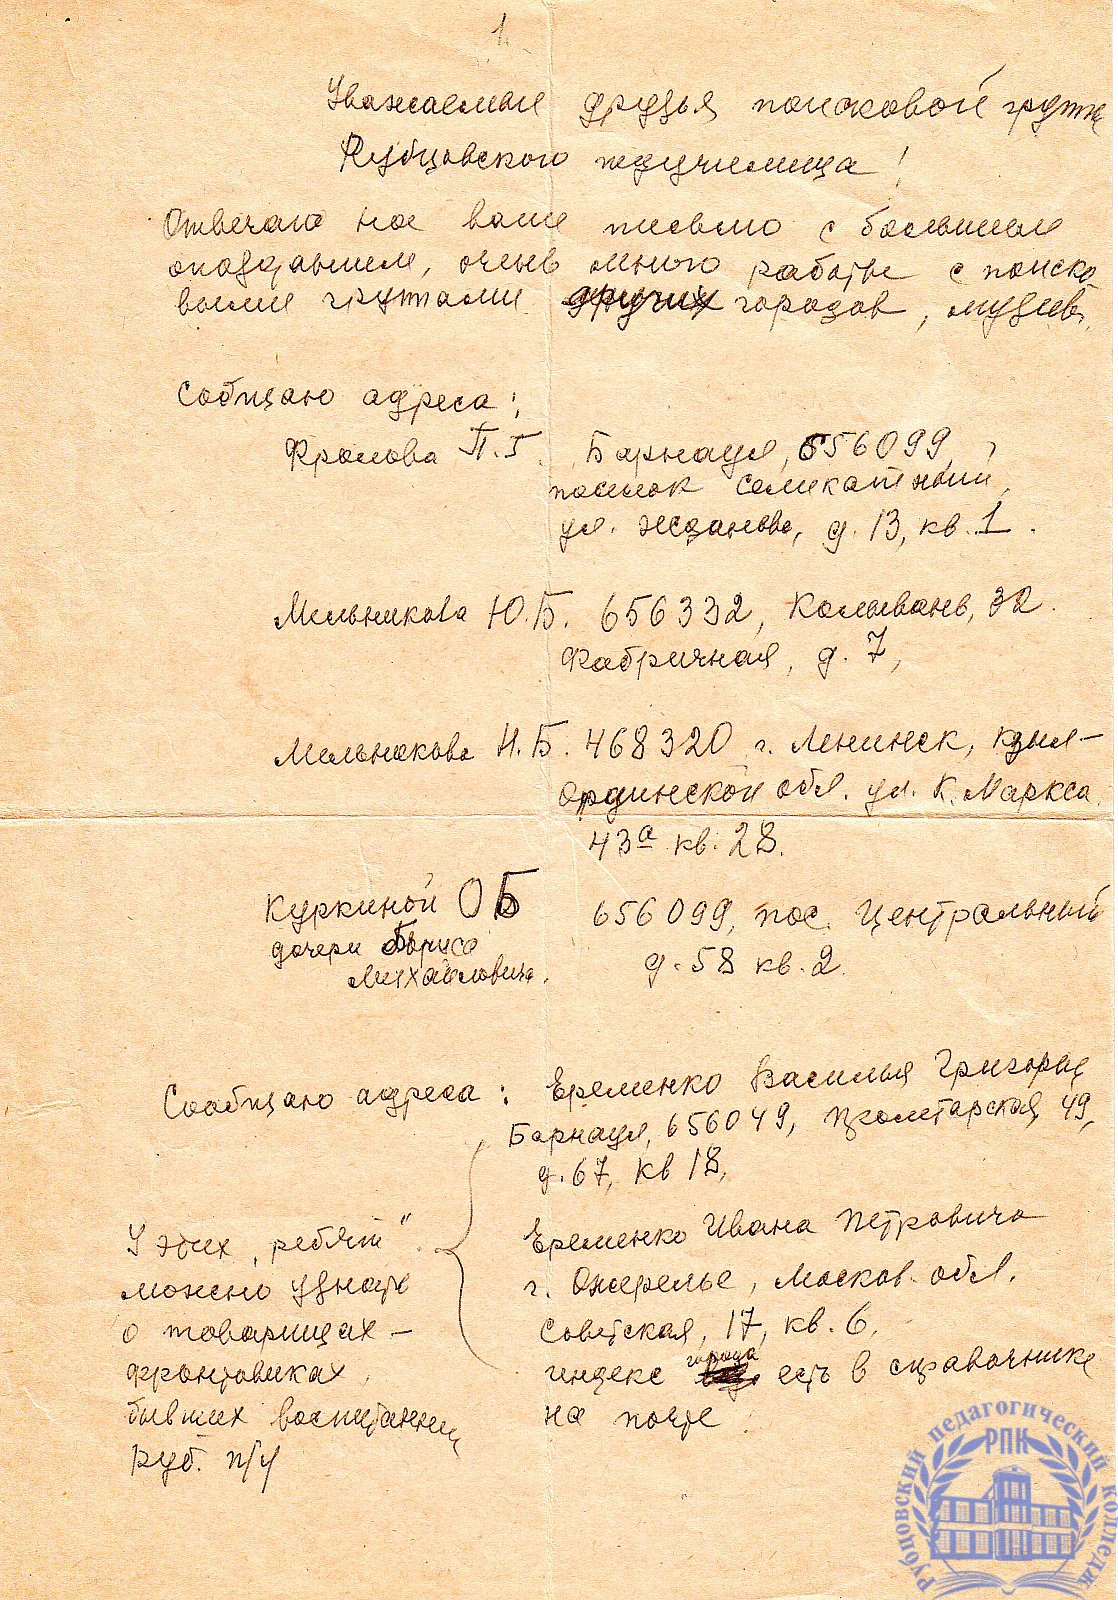 1.
Уважаемые друзья поисковой группы
Рубцовского педучилища!
Отвечаю на ваше письмо с большим
опозданием, очень много работы с поиско
выми группами других городов, музеев.
Сообщаю адреса:
Фролова П.Г. Барнаул, 656099,
поселок Силикатный,
ул. Жданова, д. 13, кв. 1.
Мельникова Ю.Б. 656332, Колывань, 32.
Фабричная, д. 7,
Мельникова Н.Б. 468320 г. Ленинск, Кзыл-
Ординской обл. ул. К. Маркса
43а кв. 28.
Куркиной О Б 656099, пос. Центральный
дочери Бориса д. 58 кв. 2.
Михайловича.
Сообщаю адреса: Еременко Василия Григорье
Барнаул, 656049, Пролетарская, 49,
д. 67, кв 18,
У этих "ребят" Еременко Ивана Петровича
можно узнать г. Ожерелье, Москов. обл.
о товарищах - Советская, 17, кв. 6,
фронтовиках, индекс города есть в справочнике
бывших воспитанник на почте.
Руб. п/у
Рубцовский педагогический колледж
РПК